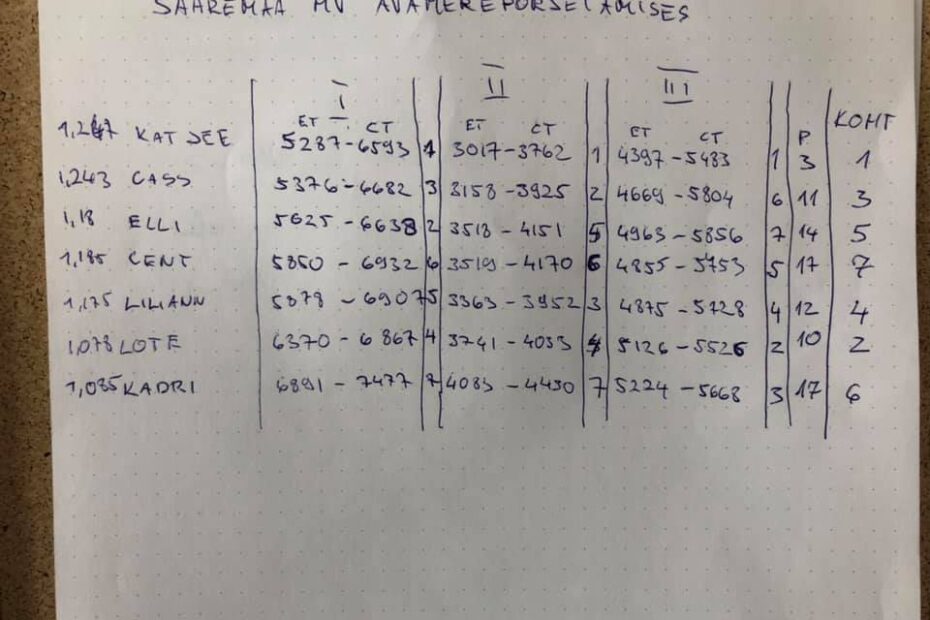 SAAREMAA MV AVAMEREPURJETAMISES
I II III
ET CT ET CT ET CT P KOHT
1,247 KATJEE 5287-6593 1 3017-3762 1 4397-5483 1 3 1
1,243 CASS 5376-6682 3 3158-3925 2 4669-5804 6 11 3
1,18 ELLI 5625-6638 2 3518-4151 5 4963-5856 7 14 5
1,185 CENT 5850-6932 6 3519-4170 6 4855-5753 5 17 7
1,175 LILIANN 5878-6907 5 3363-3952 3 4875-5728 4 12 4
1,078 LOTE 6370-6867 4 3741-4033 4 5126-5526 2 10 2
1,085 KADRI 6891-7477 7 4083-4430 7 5224-5668 3 17 6